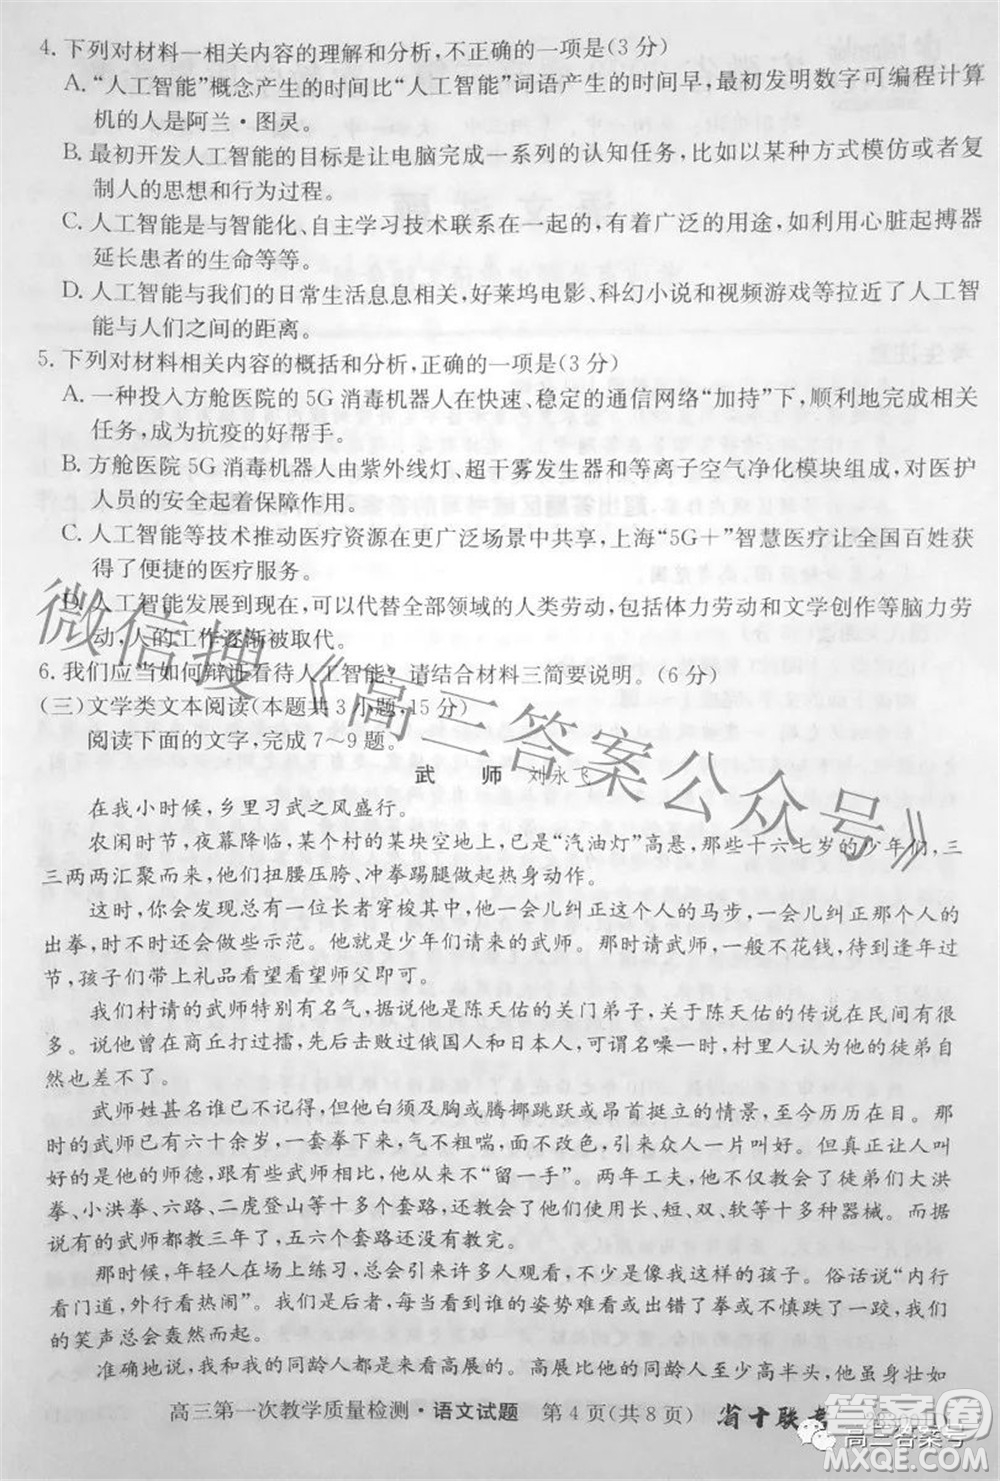 4. 下列对材料一相关内容的理解和分析,不正确的一项是(3 分)
A. “人工智能”概念产生的时间比“人工智能”词语产生的时间早,最初发明数字可编程计算
机的人是阿兰·图灵。
B. 最初开发人工智能的目标是让电脑完成一系列的认知任务,比如以某种方式模仿或者复
制人的思想和行为过程。
C. 人工智能是与智能化、自主学习技术联系在一起的,有着广泛的用途,如利用心脏起搏器
延长患者的生命等等。
D. 人工智能与我们的日常生活息息相关,好莱坞电影、科幻小说和视频游戏等拉近了人工智
能与人们之间的距离。
5. 下列对材料相关内容的概括和分析,正确的一项是(3 分)
A. 一种投入方舱医院的 5G 消毒机器人在快速、稳定的通信网络“加持”下,顺利地完成相关
任务,成为抗疫的好帮手。
B. 方舱医院 5G 消毒机器人由紫外线灯、超干雾发生器和等离子空气净化模块组成,对医护
人员的安全起着保障作用。
C. 人工智能等技术推动医疗资源在更广泛场景中共享,上海“5G＋”智慧医疗让全国百姓获
得了便捷的医疗服务。
D. 人工智能发展到现在,可以代替全部领域的人类劳动,包括体力劳动和文学创作等脑力劳
动,人的工作逐渐被取代。
6. 我们应当如何辩证看待人工智能？请结合材料三简要说明。(6 分)
(三)文学类文本阅读(本题共 3 小题,15 分)
阅读下面的文字,完成 7～9 题。
武 师 刘永飞
在我小时候,乡里习武之风盛行。
农闲时节,夜幕降临,某个村的某块空地上,已是“汽油灯”高悬,那些十六七岁的少年们,三
三两两汇聚而来,他们扭腰压胯、冲拳踢腿做起热身动作。
这时,你会发现总有一位长者穿梭其中,他一会儿纠正这个人的马步,一会儿纠正那个人的
出拳,有时还会做些示范。他就是少年们的武师。那时请武师,一般不花钱,待到逢年过
节,孩子们带上礼品看望看望师父即可。
我们村请的武师特别有名气,据说他是陈天佑的关门弟子,关于陈天佑的传说在民间有很
多。说他曾在商丘打过擂,先后击败过俄国人和日本人,可谓名噪一时,村里人认为他的徒弟自
然也差不了。
武师姓甚名谁已无人记得,但他白须及胸或腾挪跳跃或昂首挺立的情景,至今历历在目。那
时的武师已有六十余岁,一套拳下来,气不粗喘,面不改色,引来众人一片叫好。但真正让人叫
好的是他的师德,跟有些武师相比,他教拳从不“留一手”。两年工夫,他教会了徒弟们大洪
拳、小洪拳、六路、二虎登山等十多个套路,还教会了他们使用长、短、双、软等十多种器械。而据
说有的武师都教三年了,五六个套路还没有教完。
那时候,年轻人在场上练习,总会引来许多人观看,不少是像我这样的孩子。俗话说“内行
看门道,外行看热闹”。我们是后者,每每看到谁的姿势难看或出错了拳或不慎跌了一跤,我们
的笑声总会轰然而起。
准确地说,我和我的同龄人都是来看高展的。高展比他的同龄人至少高半头,他虽身壮如
高三第一次教学质量检测·语文试题 第 4 页(共 8 页) 省十联考
微信搜《高三答案公众号》
高三答案号